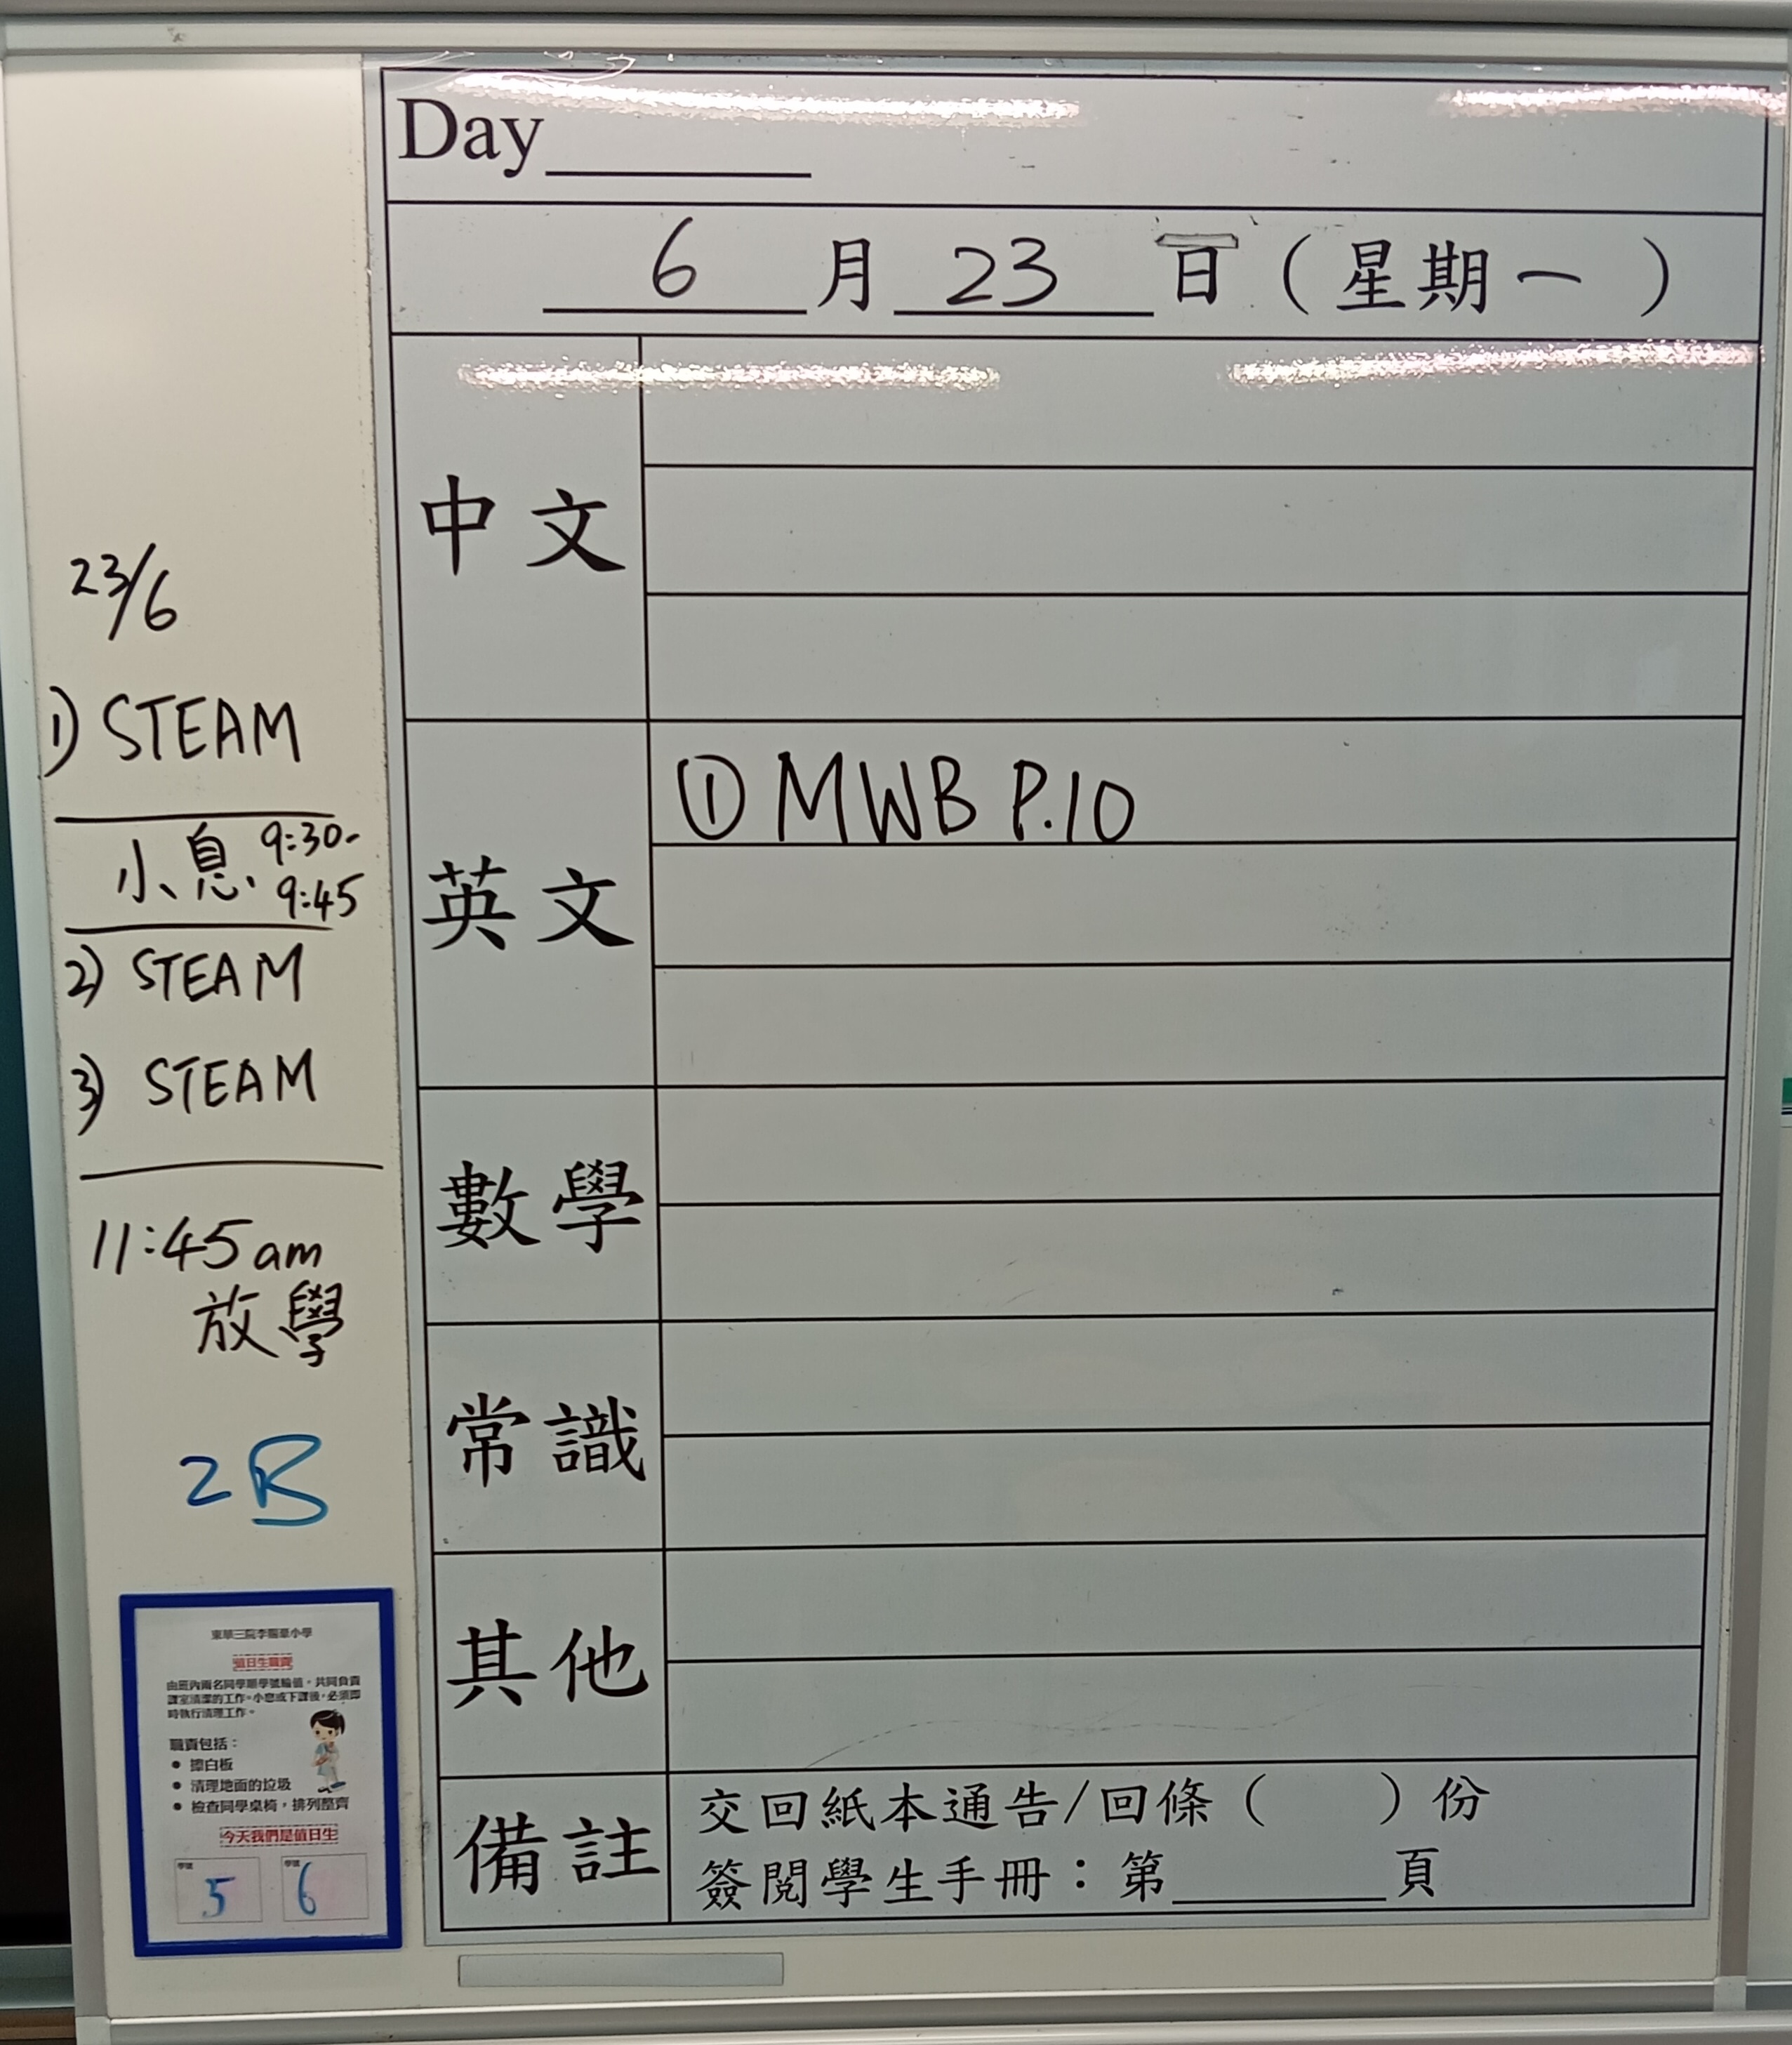 Day
6 月 23 日 ( 星期一 )
中文
英文
① MWB P.10
數學
常識
其他
備註
交回紙本通告/回條 ( ) 份
簽閱學生手冊：第 頁
23/6
1) STEAM
小息 9:30-
9:45
2) STEAM
3) STEAM
11:45am
放學
2B
東華三院李賜豪小學
值日生職責
由班內兩名同學順學號輪值，共同負責
課室清潔的工作。小息或下課後，必須即
時執行清理工作。
職責包括：
• 擦白板
• 清理地面的垃圾
• 檢查同學桌椅，排列整齊
今天我們是值日生
學號 學號
5 6